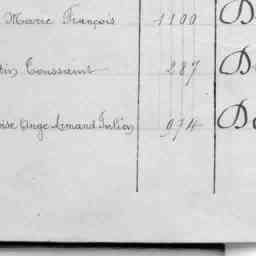 Marie François 1100 D
tin Toussaint 287 D
oise Ange Armand Julien 974 De